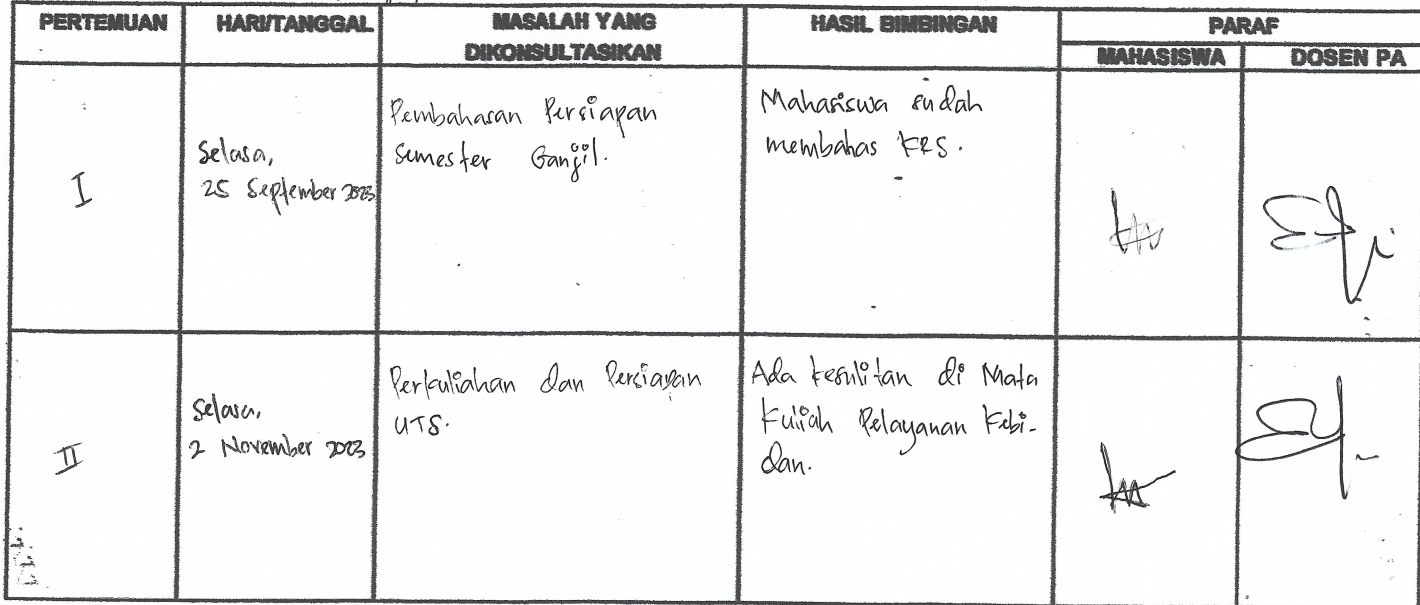 PERTEMUAN
HARI/TANGGAL
MASALAH YANG
DIKONSULTASIKAN
HASIL BIMBINGAN
PARAF
MAHASISWA
DOSEN PA
I
Selasa,
25 September 2023
Pembahasan Persiapan
Semester Ganjil.
Mahasiswa sudah
membahas KRS.
II
Selasa,
2 November 2023
Perkuliahan dan Persiapan
UTS.
Ada kesulitan di Mata
Kuliah Pelayanan Kebi-
dan.